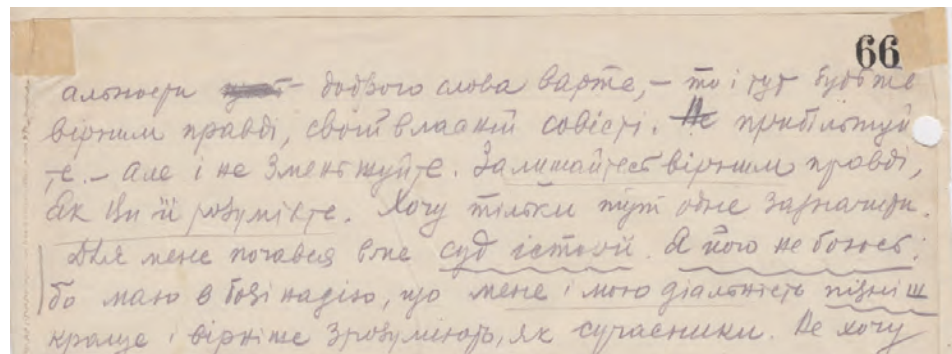 66
альности – доброго слова варте, – то і тут будьте
вірним правді, своїй власній совісті. Не прибільшуй
те. – Але і не зменшуйте. Залишайтесь вірним правді,
як Ви її розумієте. Хочу тільки тут одне зазначити.
Для мене почався вже суд історії. А його не боюсь:
бо маю в Бозі надію, що мене і мою діяльність пізніш
краще і вірніше зрозуміють, як сучасники. Не хочу